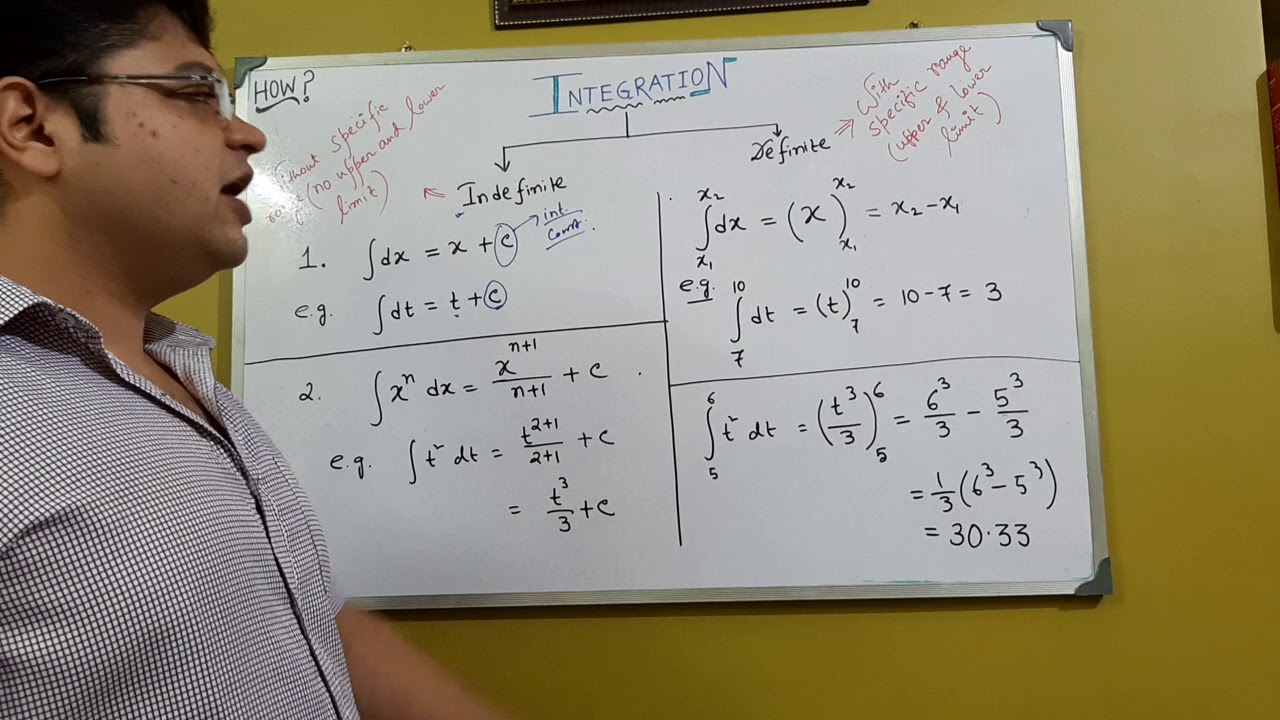 HOW?
INTEGRATION
Without specific
range (no upper and lower
limit)
⇐ Indefinite
Definite ⇒ With
specific range
(upper & lower
limit)
1. ∫dx = x + c → int.
const.
e.g. ∫dt = t + c
2. ∫xⁿ dx = xⁿ⁺¹/n+1 + c
e.g. ∫t² dt = t²⁺¹/2+1 + c
= t³/3 + c
∫ₓ₁ˣ² dx = (x)ₓ₁ˣ² = x₂ - x₁
e.g. ∫₇¹⁰ dt = (t)₇¹⁰ = 10 - 7 = 3
∫₅⁶ t² dt = (t³/3)₅⁶ = 6³/3 - 5³/3
= 1/3 (6³ - 5³)
= 30.33